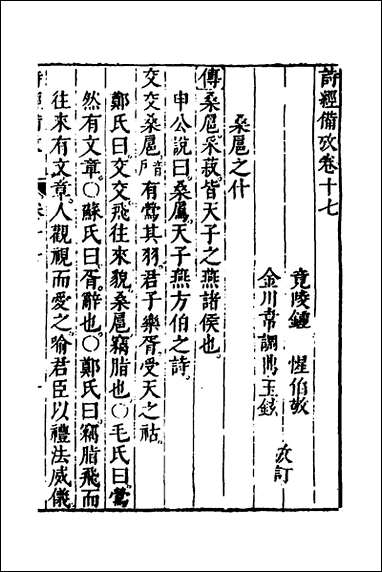 詩經備攷卷十七
竟陵鍾 惺伯敬
金川韋調鼎玉鉉 攷訂
桑扈之什
傳桑扈采菽皆天子之燕諸侯也
申公說曰桑扈天子燕方伯之詩
交交桑扈音戶有鶯其羽君子樂胥受天之祜
鄭氏曰交交飛往來貌桑扈竊脂也〇毛氏曰鶯
然有文章〇蘇氏曰胥辭也〇鄭氏曰竊脂飛而
往來有文章人觀視而愛之喻君臣以禮法威儀